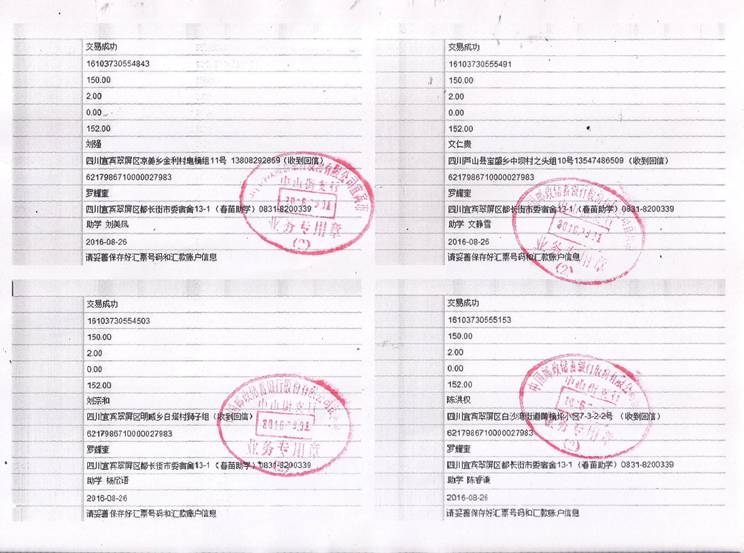 交易成功
16103730554843
150.00
2.00
0.00
152.00
刘强
四川宜宾翠屏区凉姜乡金利村电桶组11号 13808292869 (收到回信)
6217986710000027983
罗耀奎
四川宜宾翠屏区都长街市委宿舍13-1 (春苗助学) 0831-8200339
助学 刘美凤
2016-08-26
请妥善保存好汇票号码和汇款账户信息
中山街支行
业务专用章
(2)
交易成功
16103730555491
150.00
2.00
0.00
152.00
文仁贵
四川芦山县宝盛乡中坝村之头组10号13547486509 (收到回信)
6217986710000027983
罗耀奎
四川宜宾翠屏区都长街市委宿舍13-1 (春苗助学) 0831-8200339
助学 文静雪
2016-08-26
请妥善保存好汇票号码和汇款账户信息
(2)
交易成功
16103730554503
150.00
2.00
0.00
152.00
刘宗和
四川宜宾翠屏区明威乡白塔村狮子组 (收到回信)
6217986710000027983
罗耀奎
四川宜宾翠屏区都长街市委宿舍13-1 (春苗助学) 0831-8200339
助学 杨欣语
2016-08-26
请妥善保存好汇票号码和汇款账户信息
中山街支行
业务专用章
交易成功
16103730555153
150.00
2.00
0.00
152.00
陈洪权
四川宜宾翠屏区白沙湾街道 7-3-2-2号 (收到回信)
6217986710000027983
罗耀奎
四川宜宾翠屏区都长街市委宿舍13-1 (春苗助学) 0831-8200339
助学 陈睿谦
2016-08-26
请妥善保存好汇票号码和汇款账户信息
业务专用章